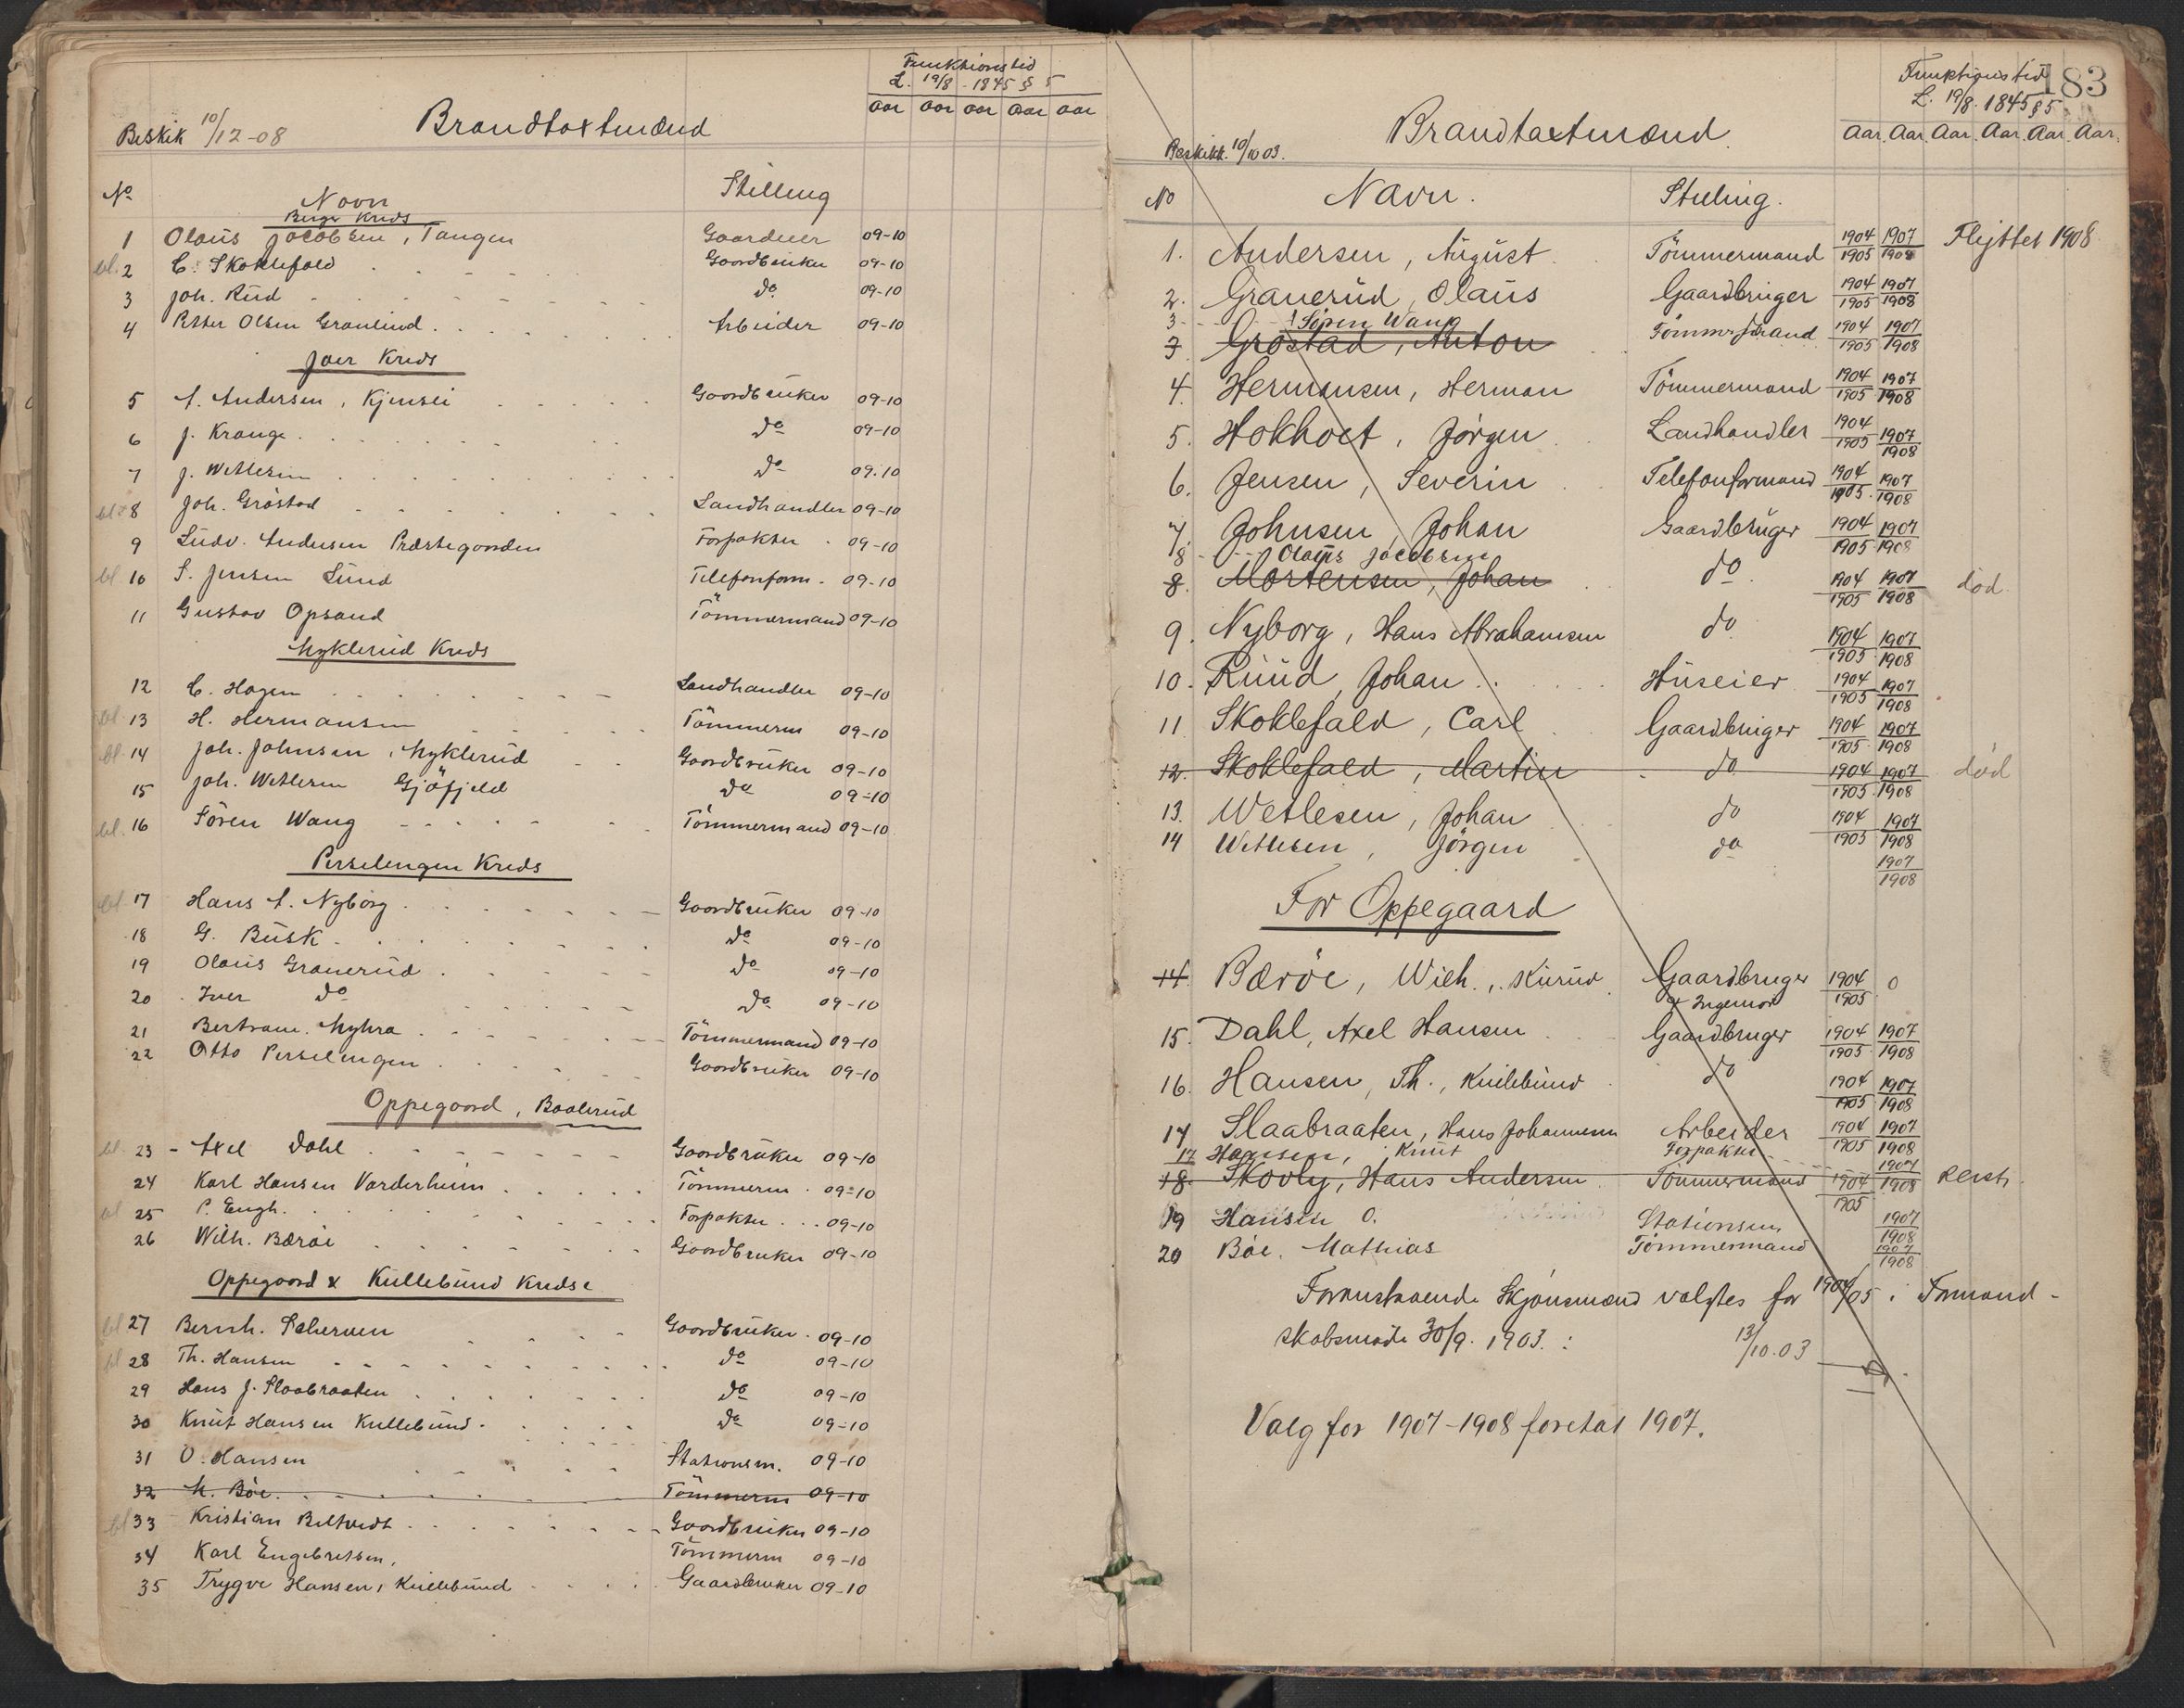 Funktionstid
L. 19/8 - 1845 § 5
Aar Aar Aar Aar Aar
Beskik 10/12-08 Brandtaxtmænd
No Navn Stilling
Berger Kreds
1 Olaüs Jacobsen, Tangen Gaardeier 09-10
bl. 2 C. Skoklefald Gaardbrüker 09-10
3 Joh. Rüd do 09-10
4 Petter Olsen Granlund Arbeider 09-10
Jaer Kreds
5 A. Andersen, Kjensli Gaardbrüker 09-10
6 J. Krange do 09-10
7 J. Wetlesen do 09.10
bl. 8 Joh. Gröstad Landhandler 09-10
9 Lüdv. Andersen Præstegaarden Forpakter 09-10
bl. 10 S. Jensen Sünd Telefonform. 09-10
11 Gustav Opsand Tömmermand 09-10
Myklerüd Kreds
12 C. Hagen Landhandler 09-10
bl. 13 H. Hermansen Tömmerm 09-10
bl. 14 Joh. Johnsen, Myklerüd Gaardbrüker 09-10
15 Joh. Wetlesen Gjöfjeld do 09-10
bl. 16 Sören Wang Tömmermand 09-10
Persleengen Kreds
bl. 17 Hans A. Nyborg Gaardbrüker 09-10
18 G. Büsk do 09-10
19 Olaüs Granerüd do 09-10
20 Iver do do 09-10
21 Bertram Myhra Tömmermand 09-10
22 Otto Perseleengen Gaardbrüker 09-10
Oppegaard, Baalerüd
bl. 23 - Axel Dahl Gaardbrüker 09-10
24 Karl Hansen Varderheim Tömmerm 09-10
bl 25 P. Engh. Forpakter 09-10
26 Wilh. Bæröe Gaardbruker 09-10
Oppegaard & Küllebünd Kredse
bl 27 Bernh. Scherven Gaardbrüker 09-10
bl 28 Th. Hansen do 09-10
29 Hans J. Slaabraaten do 09-10
30 Knüt Hansen Kullebünd do 09-10
31 O. Hansen Stationsm. 09-10
32 M. Böe Tömmerm 09-10
bl 33 Kristian Biltvedt Gaardbrüker 09-10
34 Karl Engebretsen, Tömmerm 09-10
35 Trygve Hansen, Küllebünd Gaardbruker 09-10
183
Funktionstid
L. 19/8. 1845 § 5
Aar. Aar. Aar. Aar. Aar. Aar.
Beskikk. 10/10 03. Brandtaxtmænd.
No Navn. Stilling.
1. Andersen, Aügüst Tömmermand 1904 1905 1907 1908 Flyttet 1908
2. Granerüd, Olaüs Gaardbrüger 1904 1905 1907 1908
3 Sören Wang
3. Gröstad, Anton Tömmermand 1904 1905 1907 1908
4. Hermansen, Herman Tömmermand 1904 1905 1907 1908
5. Hokholt, Jörgen Landhandler 1904 1905 1907 1908
6. Jensen, Severin Telefonformand 1904 1905 1907 1908
7. Johnsen, Johan Gaardbrüger 1904 1905 1907 1908
8 Olaüs Jacobsen
8. Mortensen, Johan do 1904 1905 1907 1908 död.
9. Nyborg, Hans Abrahamsen do 1904 1905 1907 1908
10. Rüüd, Johan Hüseier 1904 1905 1907 1908
11 Skoklefald, Carl Gaardbrüger 1904 1905 1907 1908
12. Skoklefald, Martin do 1904 1905 1907 1908 död
13. Wetlesen, Johan do 1904 1905 1907 1908
14 Wetlesen, Jörgen do 1907 1908
For Oppegaard
14 Bæröe, Wilh., Kürüd Gaardbruger 1904 1905 0
& Ingeniör
15. Dahl, Axel Hansen Gaardbruger 1904 1905 1907 1908
16. Hansen, Th., Küllebünd do 1904 1905 1907 1908
17 Slaabraaten, Hans Johannesen Arbeider 1904 1905 1907 1908
17 Hansen, Knüt Forpakter 1907 1908
18. Skovly, Hans Andersen Tömmermand 1904 1905
19 Hansen O. Stationsm, 1907 1908
20 Böe, Mathias Tömmermand 1907 1908
Foranstaaende Skjönsmænd valgtes for 1904/05 i Formand-
skabsmöde 30/9. 1903.: 13/10.03
Valg for 1907-1908 foretat 1907.